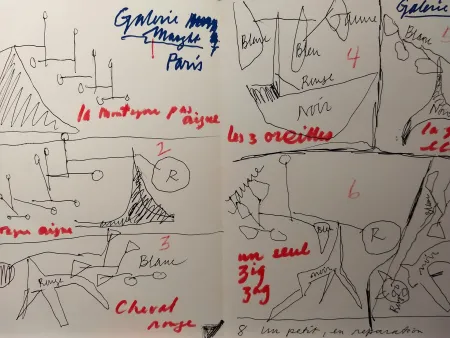 Galerie
Maeght
Paris
la montagne pas
aigue
2
R
aigue
3
Rouge
Blanc
Cheval
rouge
Blanc
Bleu
Jaune
4
Rouge
Noir
les 3 oreilles
Galerie
Blanc
Noir
la 3
Jaune
6
Bleu
R
noir
un seul
zig
zag
noir
8 Un petit, en reparation